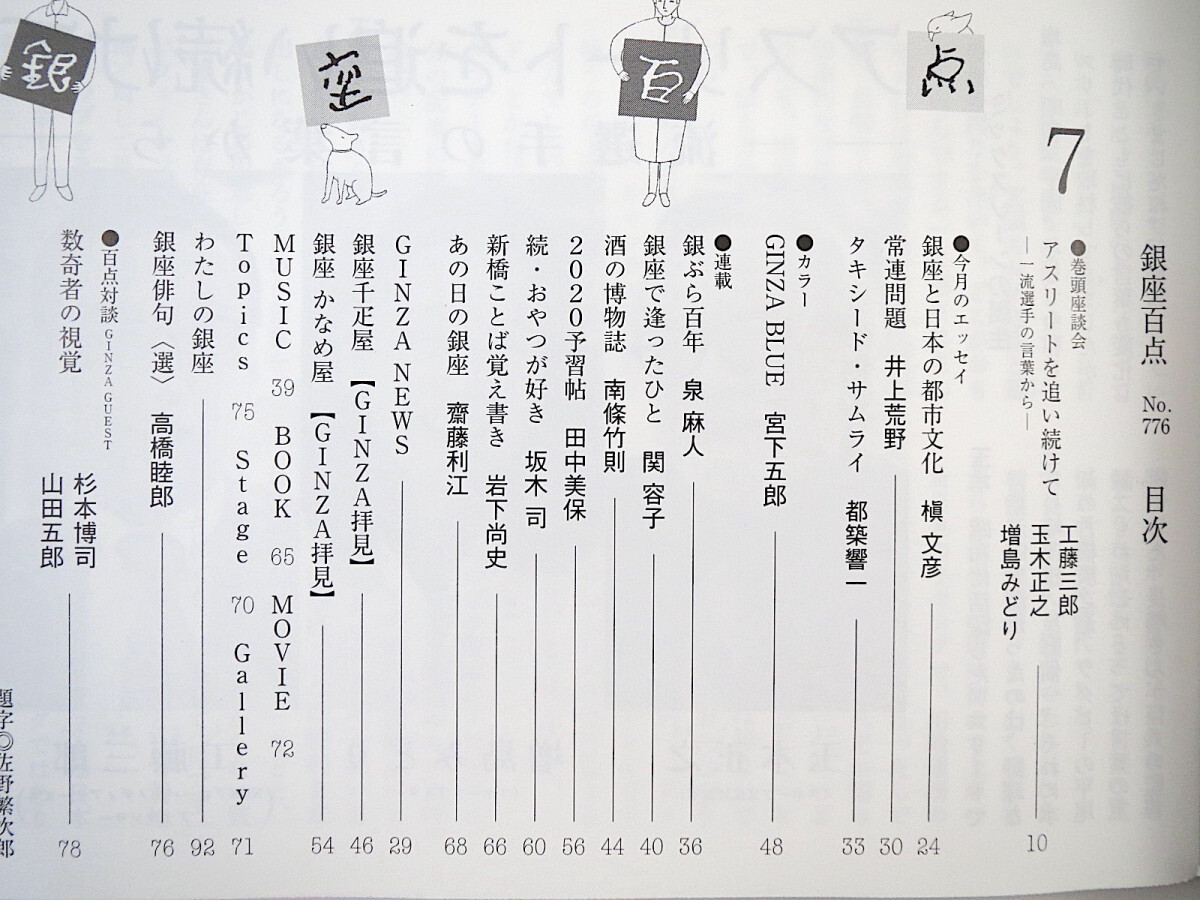 銀座百点 No.776 目次
7
点
百
座
銀
●巻頭座談会
アスリートを追い続けて
―一流選手の言葉から―
工藤三郎
玉木正之
増島みどり 10
●今月のエッセイ
銀座と日本の都市文化 槇 文彦 24
常連問題 井上荒野 30
タキシード・サムライ 都築響一 33
●カラー
GINZA BLUE 宮下五郎 48
●連載
銀ぶら百年 泉 麻人 36
銀座で逢ったひと 関 容子 40
酒の博物誌 南條竹則 44
2020予習帖 田中美保 56
続・おやつが好き 坂木 司 60
新橋ことば覚え書き 岩下尚史 66
あの日の銀座 齋藤利江 68
GINZA NEWS 29
銀座千疋屋 【GINZA拝見】 46
銀座 かなめ屋 【GINZA拝見】 54
MUSIC 39 BOOK 65 MOVIE 72
Topics 75 Stage 70 Gallery 71
わたしの銀座 92
銀座俳句〈選〉 高橋睦郎 76
●百点対談 GINZA GUEST
数奇者の視覚
杉本博司
山田五郎 78
題字◎佐野繁次郎